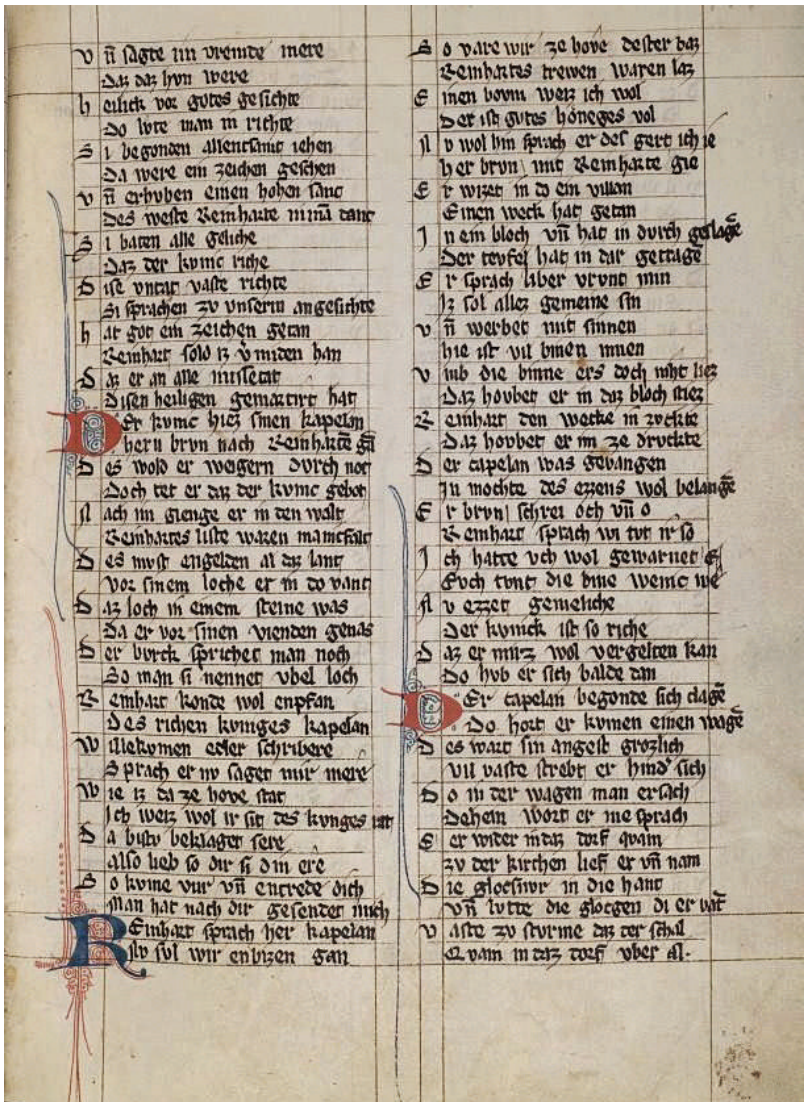 vn̄ sagte im vremde mere
Daz daz hvn were
heilick vor gotes gesichte
Do lvte man in richte
Si begonden allentsamt iehen
Da were ein zeichen geschen
vn̄ erhvben einen hohen sanc
Des weste Reinharte nimā danc
Si baten alle geliche
Daz der kvnic riche
Dise vntat vaste richte
Si sprachen zv vnserm angesichte
hat got ein zeichen getan
Reinhart sold iz v̓miden han
Daz er an alle missetat
Disen heiligen gemartirt hat
DEr kvnic hiez sinen kapelan
hern brvn nach Reinharte gā
Des wold er weigern dvrch not
Doch tet er daz der kvnic gebot
Nach im gienge er in den walt
Reinhartes liste waren manicfalt
Des mvst engelden al daz lant
Vor sinem loche er in do vant
Daz loch in einem steine was
Da er vor sinen vienden genas
Der bvrck sprichet man noch
So man si nennet vbel loch
Reinhart konde wol enpfan
Des richen kvniges kapelan
Willekvmen edler schribere
Sprach er nv saget mir mere
Wie iz da ze hove stat
Ich weiz wol ir sit des kvnges rat
Da bistv beklaget sere
Also lieb so dir si din ere
So kvme vur vn̄ entrede dich
Man hat nach dir gesendet mich
REinhart sprach her kapelan
Nv svl wir enbizen gan
So vare wir ze hove dester baz
Reinhartes trewen waren laz
Einen bovm weiz ich wol
Der ist gvtes honeges vol
Nv wol hin sprach er des gert ich ie
her brvn mit Reinharte gie
Er wizet in do ein villan
Einen weck hat getan
In em bloch vn̄ hat in dvrch geslagē
Der tevfel hat in dar getragē
Er sprach liber vrvnt min
Iz sol allez gemeine sin
vn̄ werbet mit sinnen
hie ist vil binen innen
vmb die binne ers doch niht liez
Daz hovbet er in daz bloch stiez
Reinhart den wecke in zvckte
Daz hovbet er im ze drvckte
Der capelan was gevangen
In mochte des ezzens wol belangē
Er brvn schrei och vn̄ o
Reinhart sprach wi tvt ir so
Ich hatte vch wol gewarnet E
Evch tvnt die bine wenic we
Nv ezzet gemeliche
Der kvnick ist so riche
Daz er mirz wol vergelten kan
Do hvb er sich balde dan
DEr capelan begonde sich clagē
Do hort er kvmen einen wagē
Des wart sin angest grozlich
vil vaste strebt er hind' sich
Do in der wagen man ersach
Dehein wort er nie sprach
E er wider in daz dorf qvam
zv der kirchen lief er vn̄ nam
Die glocsnvr in die hant
vn̄ lvtte die glocgen di er vāt
vaste zv stvrme daz der schal
Qvam in daz dorf vber al.